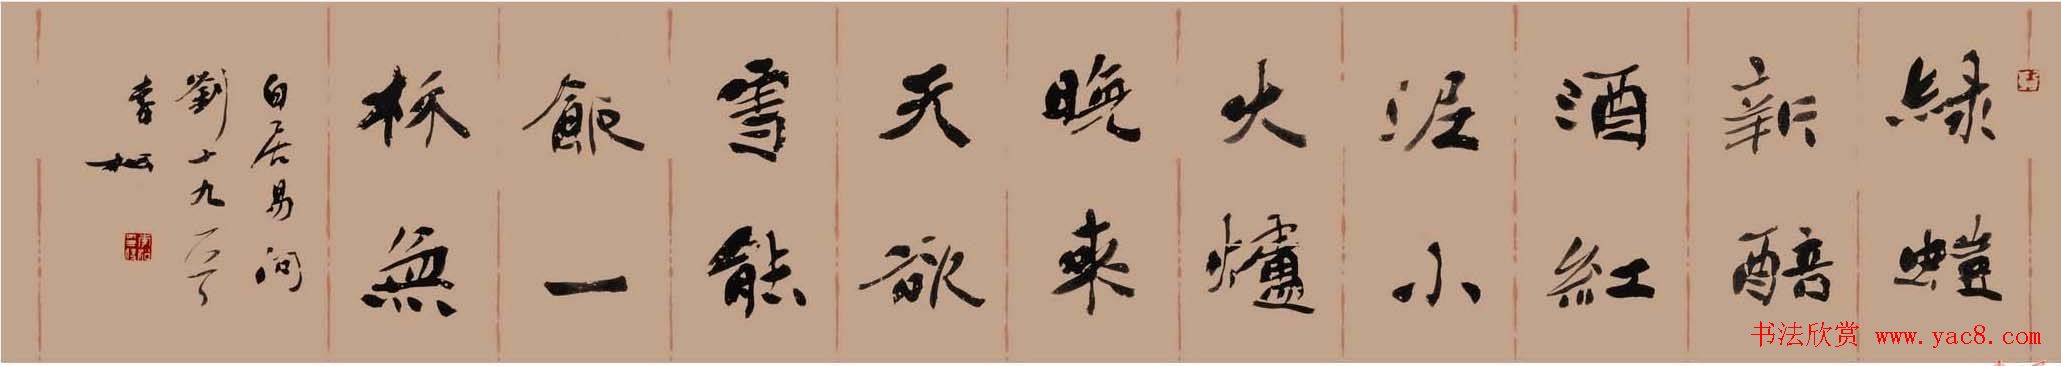 緑螘
新醅
酒紅
泥小
火爐
晚来
天欲
雪能
飲一
杯無
白居易问
劉十九
李松
书法欣赏 www.yac8.com